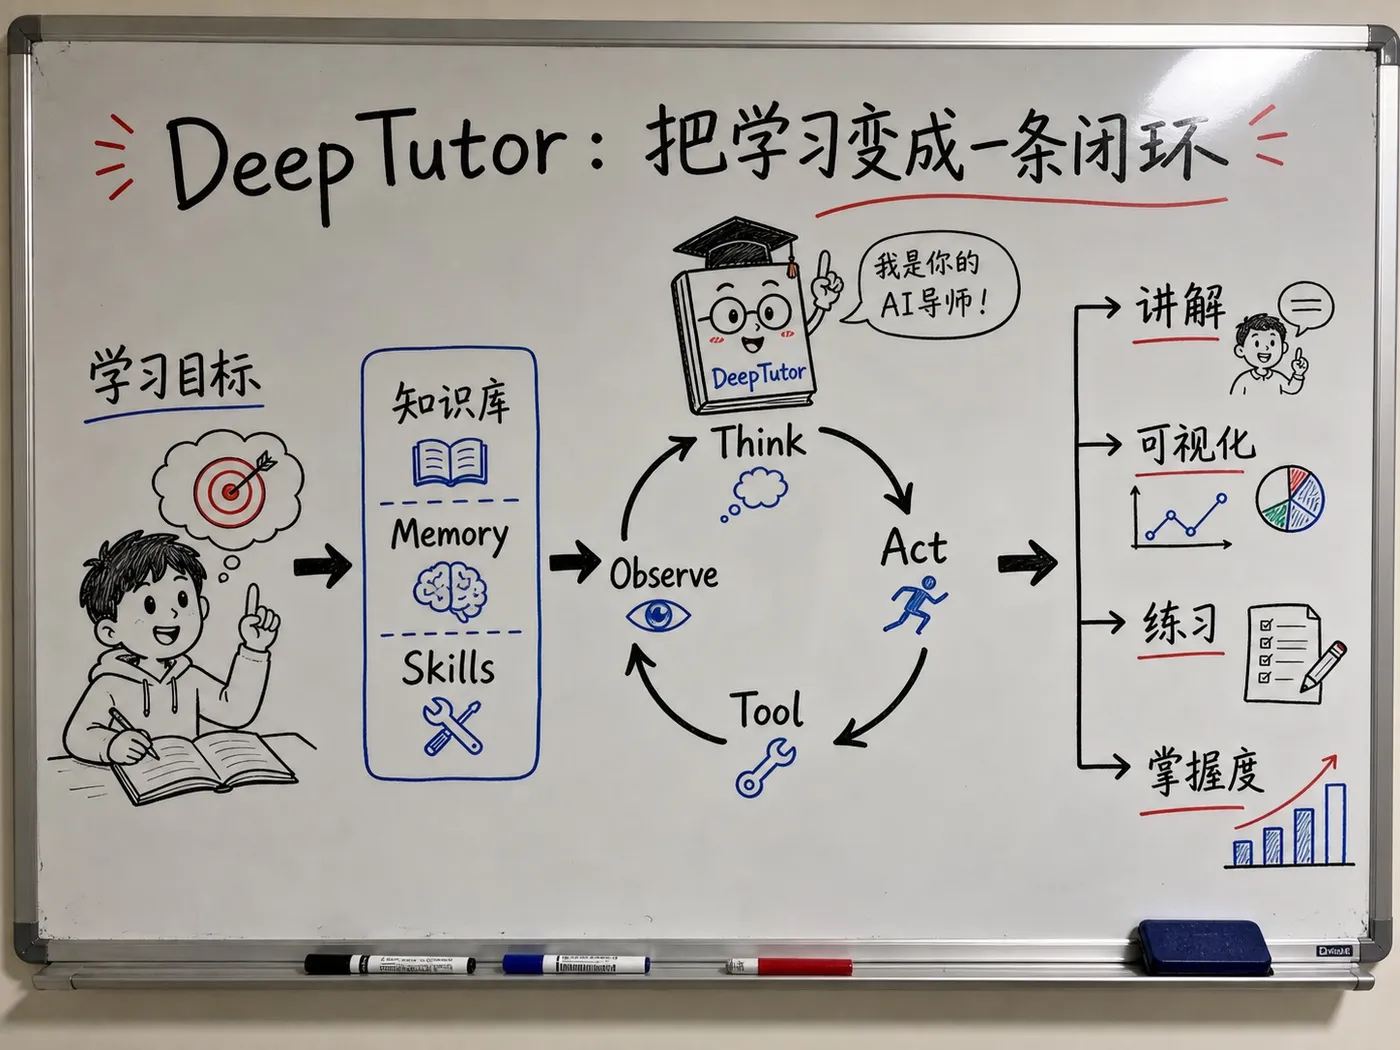 DeepTutor：把学习变成一条闭环
我是你的
AI导师！
DeepTutor
学习目标
知识库
Memory
Skills
Think
Act
Tool
Observe
讲解
可视化
练习
掌握度